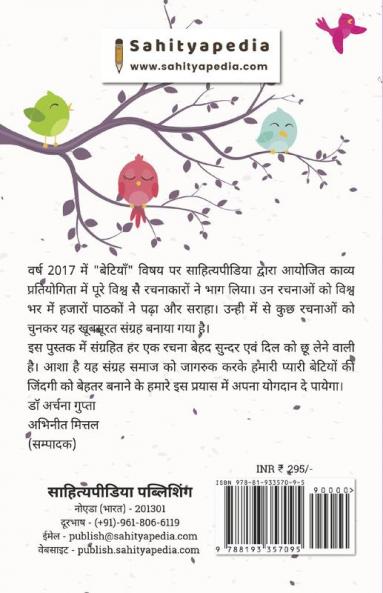 Sahityapedia
www.sahityapedia.com
वर्ष 2017 में "बेटियाँ" विषय पर साहित्यपीडिया द्वारा आयोजित काव्य
प्रतियोगिता में पूरे विश्व सै रचनाकारों ने भाग लिया। उन रचनाओं को विश्व
भर में हजारों पाठकों ने पढ़ा और सराहा। उन्ही में से कुछ रचनाओं को
चुनकर यह खूबसूरत संग्रह बनाया गया है।
इस पुस्तक में संग्रहित हर एक रचना बेहद सुन्दर एवं दिल को छू लेने वाली
है। आशा है यह संग्रह समाज को जागरुक करके हमारी प्यारी बेटियों की
जिंदगी को बेहतर बनाने के हमारे इस प्रयास में अपना योगदान दे पायेगा।
डॉ अर्चना गुप्ता
अभिनीत मित्तल
(सम्पादक)
INR ₹ 295/-
साहित्यपीडिया पब्लिशिंग
नोएडा (भारत) - 201301
दूरभाष - (+91)-961-806-6119
ईमेल - publish@sahityapedia.com
वेबसाइट - publish.sahityapedia.com
ISBN 978-81-933570-9-5
90000>
9 788193 357095